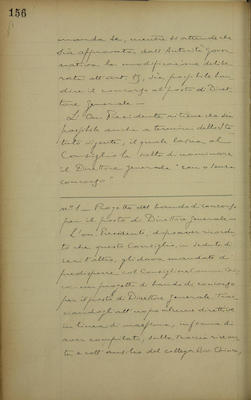 156
manda se, mentre si attende che
sia approvata dall'Autorità gover
nativa la modificazione delibe
rata all'art. 15, sia possibile ban
dire il concorso al posto di Diret
tore Generale —
L'On. Presidente ritiene che sia
possibile anche a termini dello Sta
tuto vigente, il quale lascia al
Consiglio la facoltà di nominare
il Direttore Generale "con o senza
concorso"
n° 1 — Progetto del bando di concorso
per il posto di Direttore Generale —
L'on. Presidente, dopo aver ricorda
to che questo Consiglio, in seduta di
ieri l'altro, gli dava mandato di
predisporre col Consigliere
un progetto di bando di concorso
per il posto di Direttore Generale, trac
ciandogli all'uopo talune direttive
in linea di massima, informa di
aver compilato, sulla traccia ricevu
ta e coll'ausilio del collega Avv.